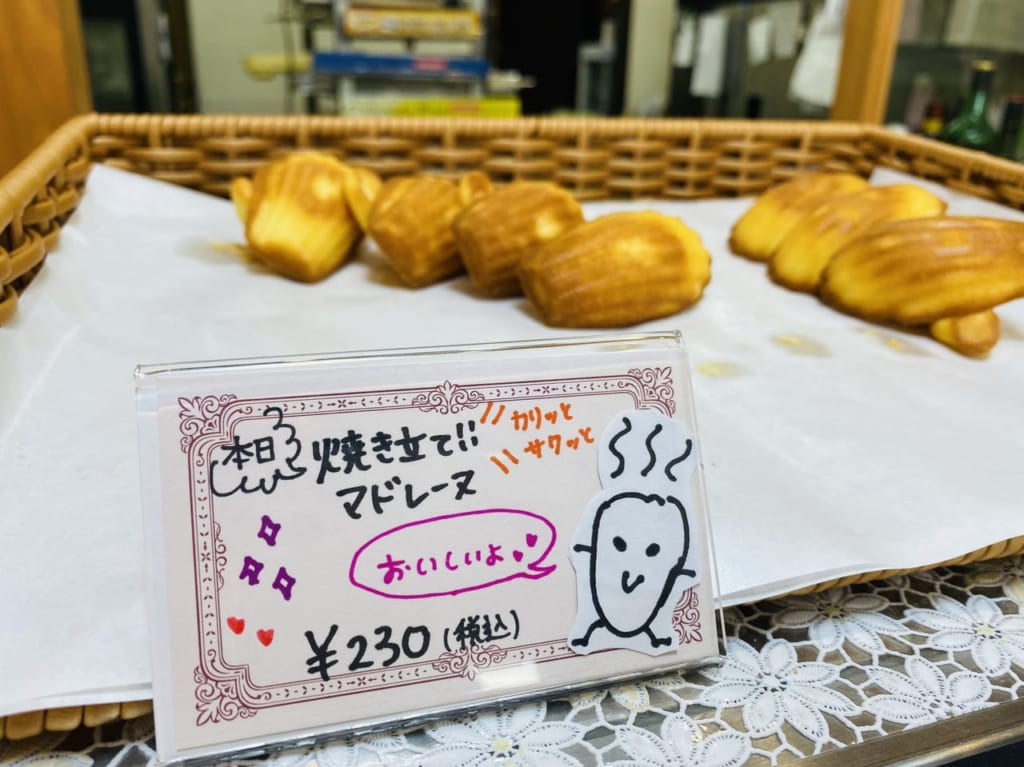 本日焼き立て!!
マドレーヌ
カリッと
サクッと
おいしいよ
¥230(税込)